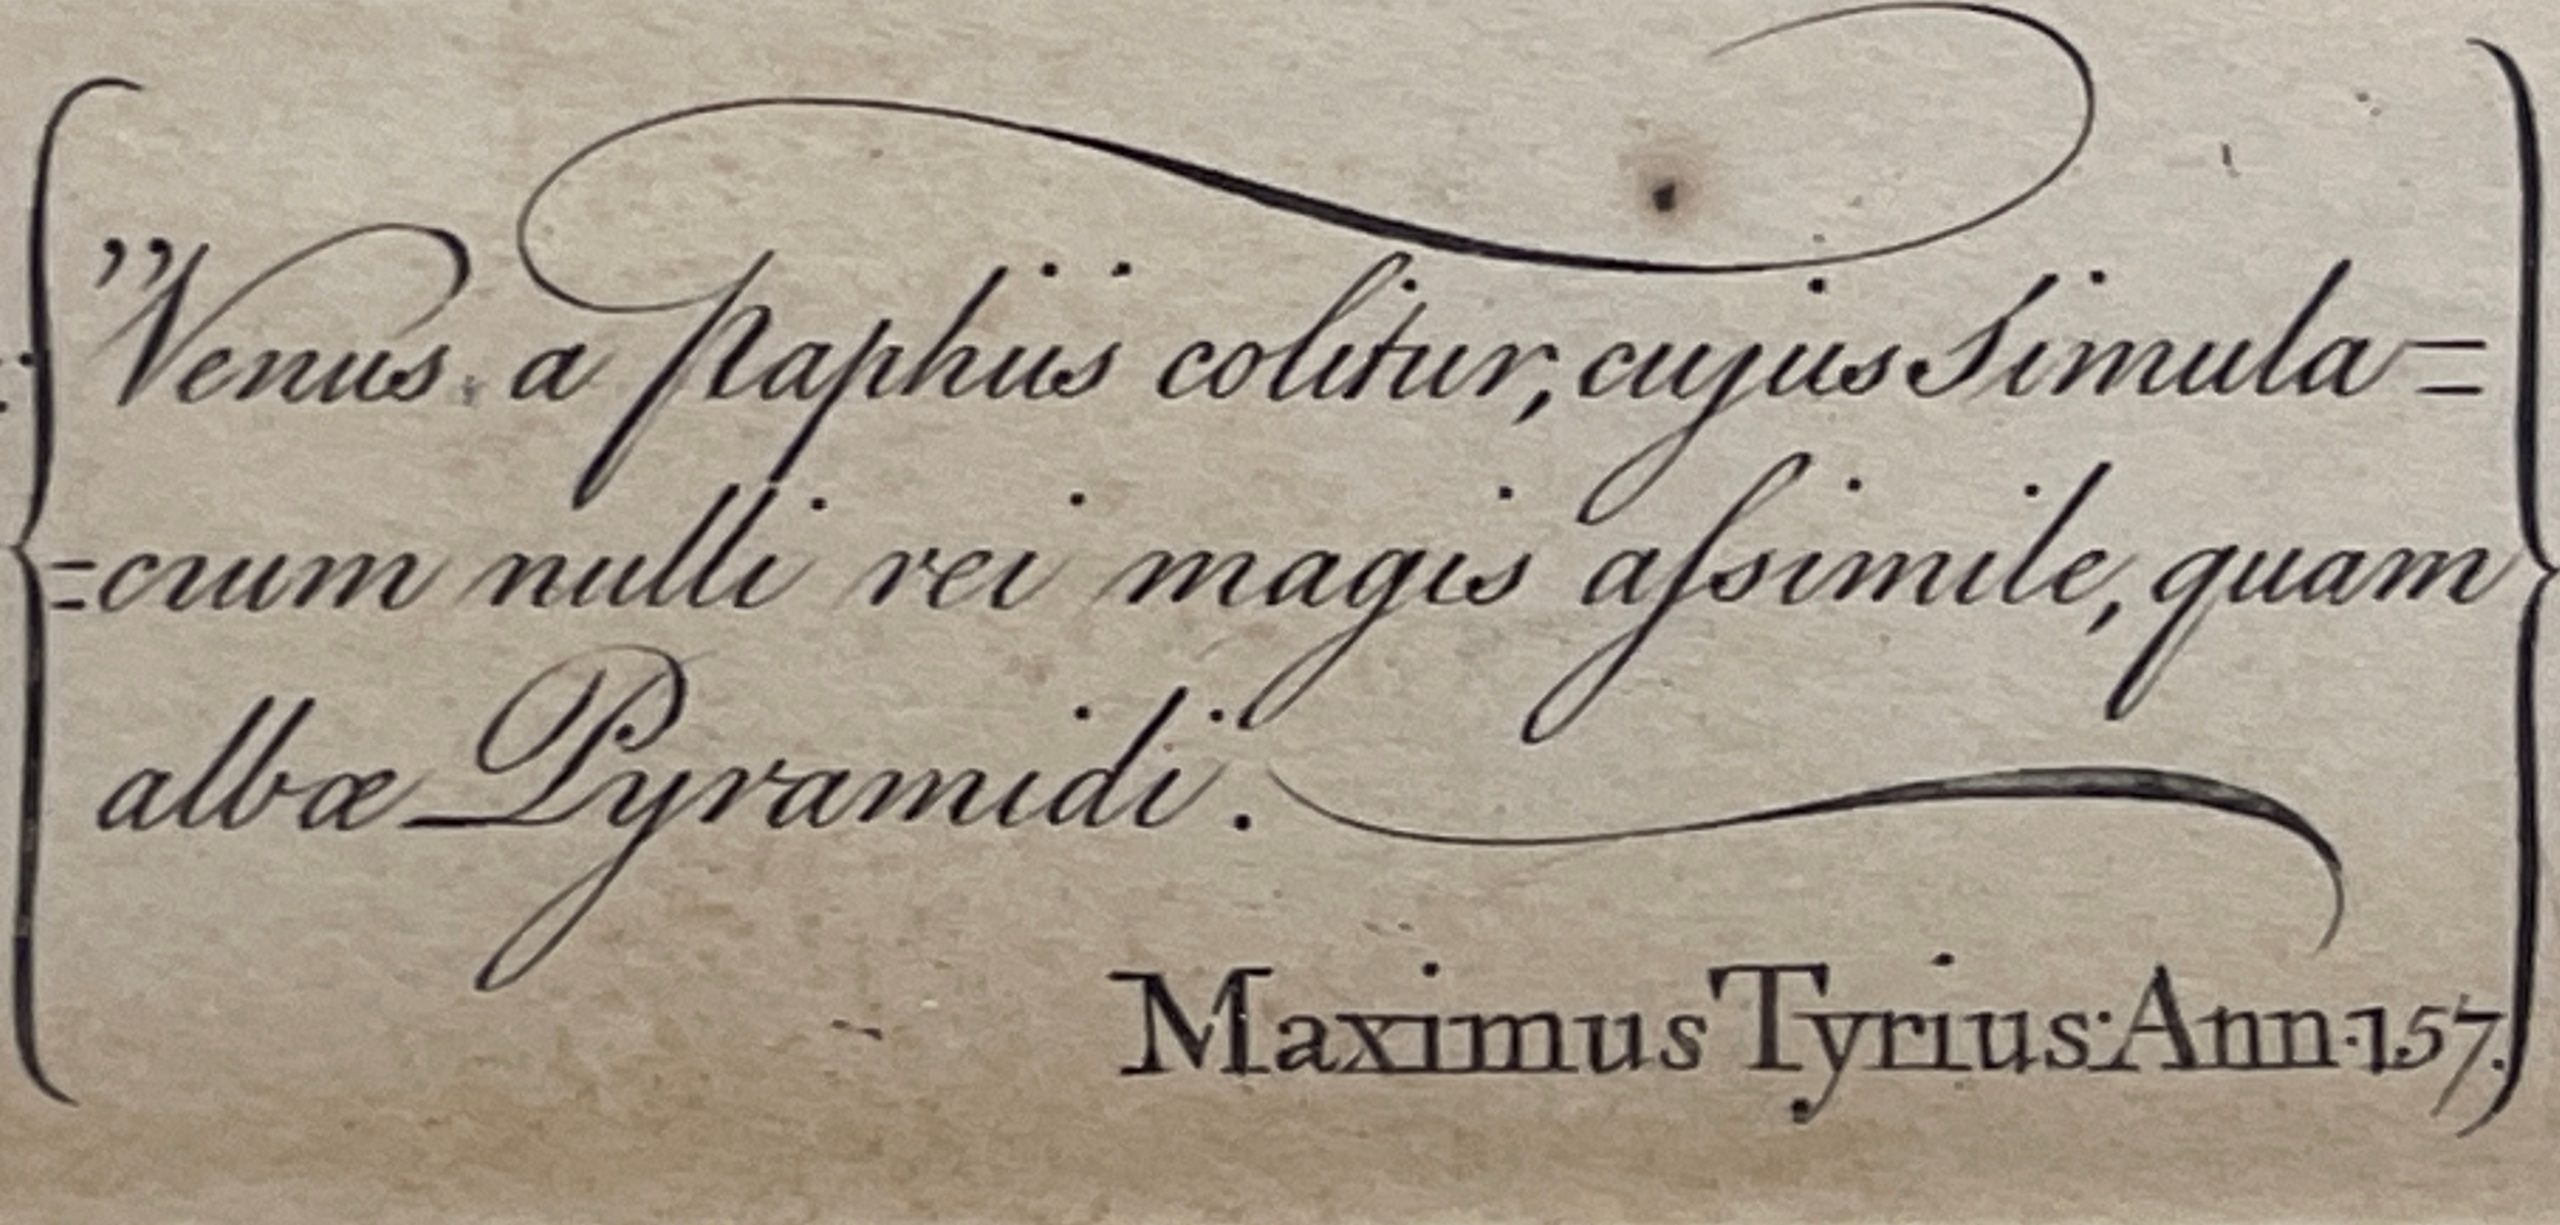 "Venus a paphiis colitur, cujus Simula=
=crum nulli rei magis aſsimile, quam
albæ Pyramidi.
Maximus Tyrius: Ann. 157.